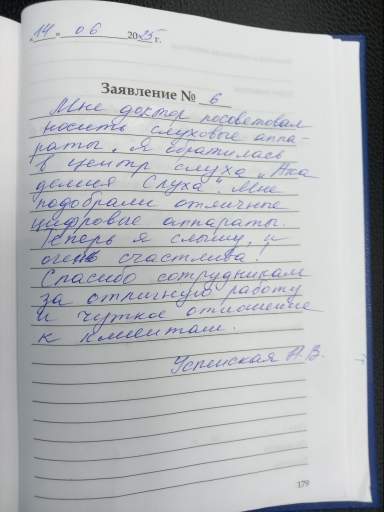 "14" 06 2025 г.
Заявление № 6
Мне доктор посоветовал
носить слуховые аппа-
раты. Я обратилась
в центр слуха „Ака
демия Слуха". Мне
подобрали отличные
цифровые аппараты.
Теперь я слышу, и
очень счастлива!
Спасибо сотрудникам
за отличную работу
и чуткое отношение
к клиентам.
Успенская А.В.
179